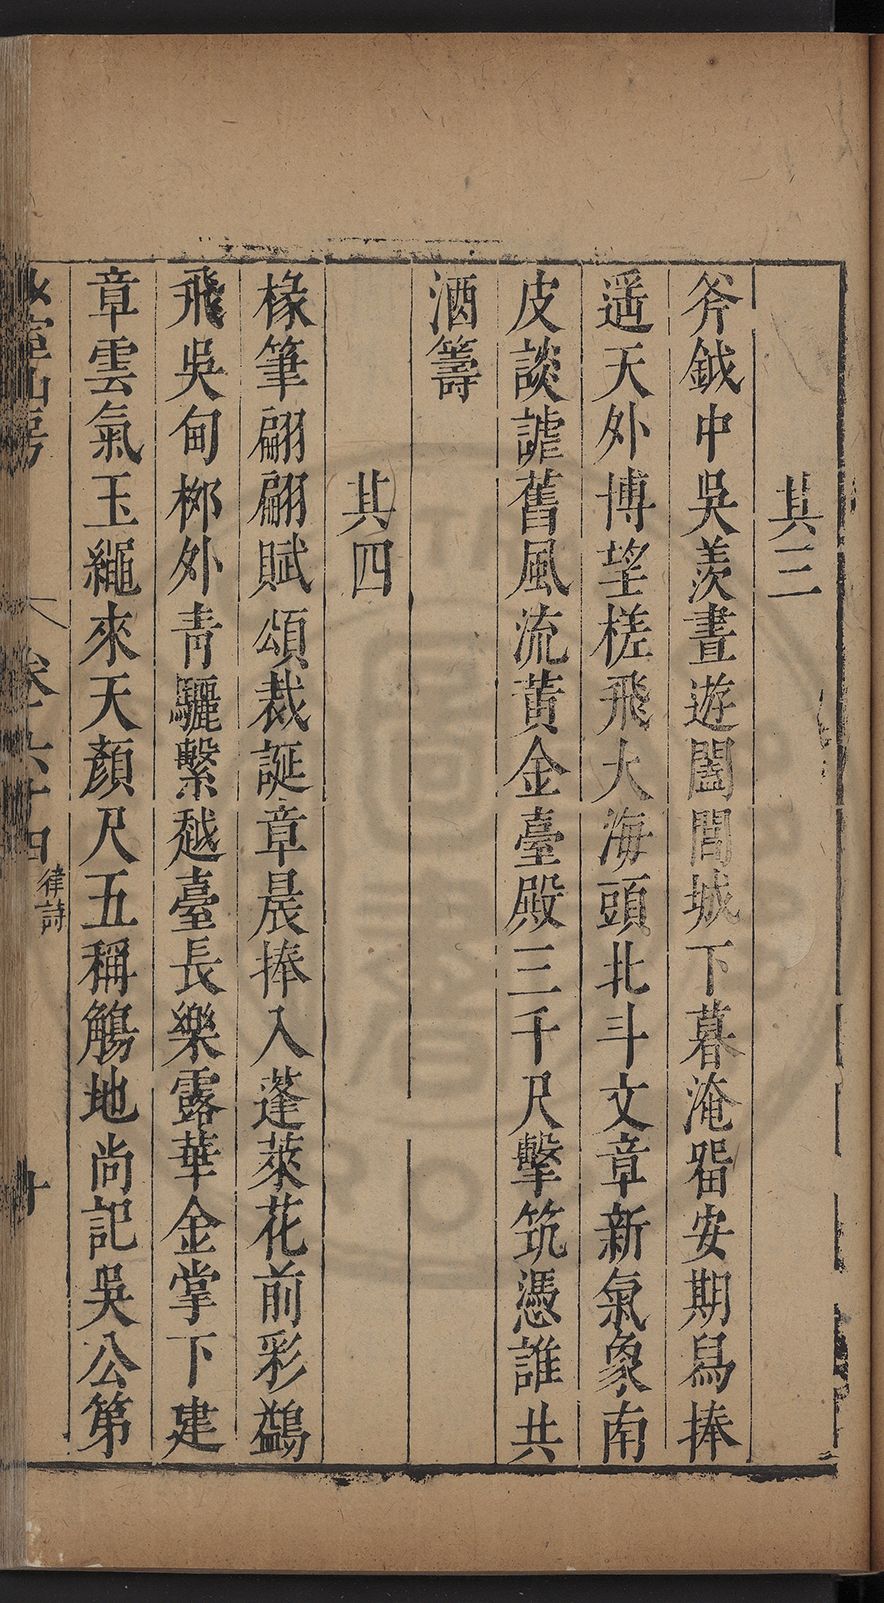 其三
斧鉞中吳羨晝遊闔閭城下暮淹畱安期舄捧
遥天外博望槎飛大海頭北斗文章新氣象南
皮談謔舊風流黃金臺殿三千尺擊筑憑誰共
酒籌
其四
椽筆翩翩賦頌裁誕章晨捧入蓬萊花前彩鷁
飛吳甸柳外青驪繫越臺長樂露華金掌下建
章雲氣玉繩來天顏尺五稱觴地尚記吳公第
室山房
卷六十四
律詩
十